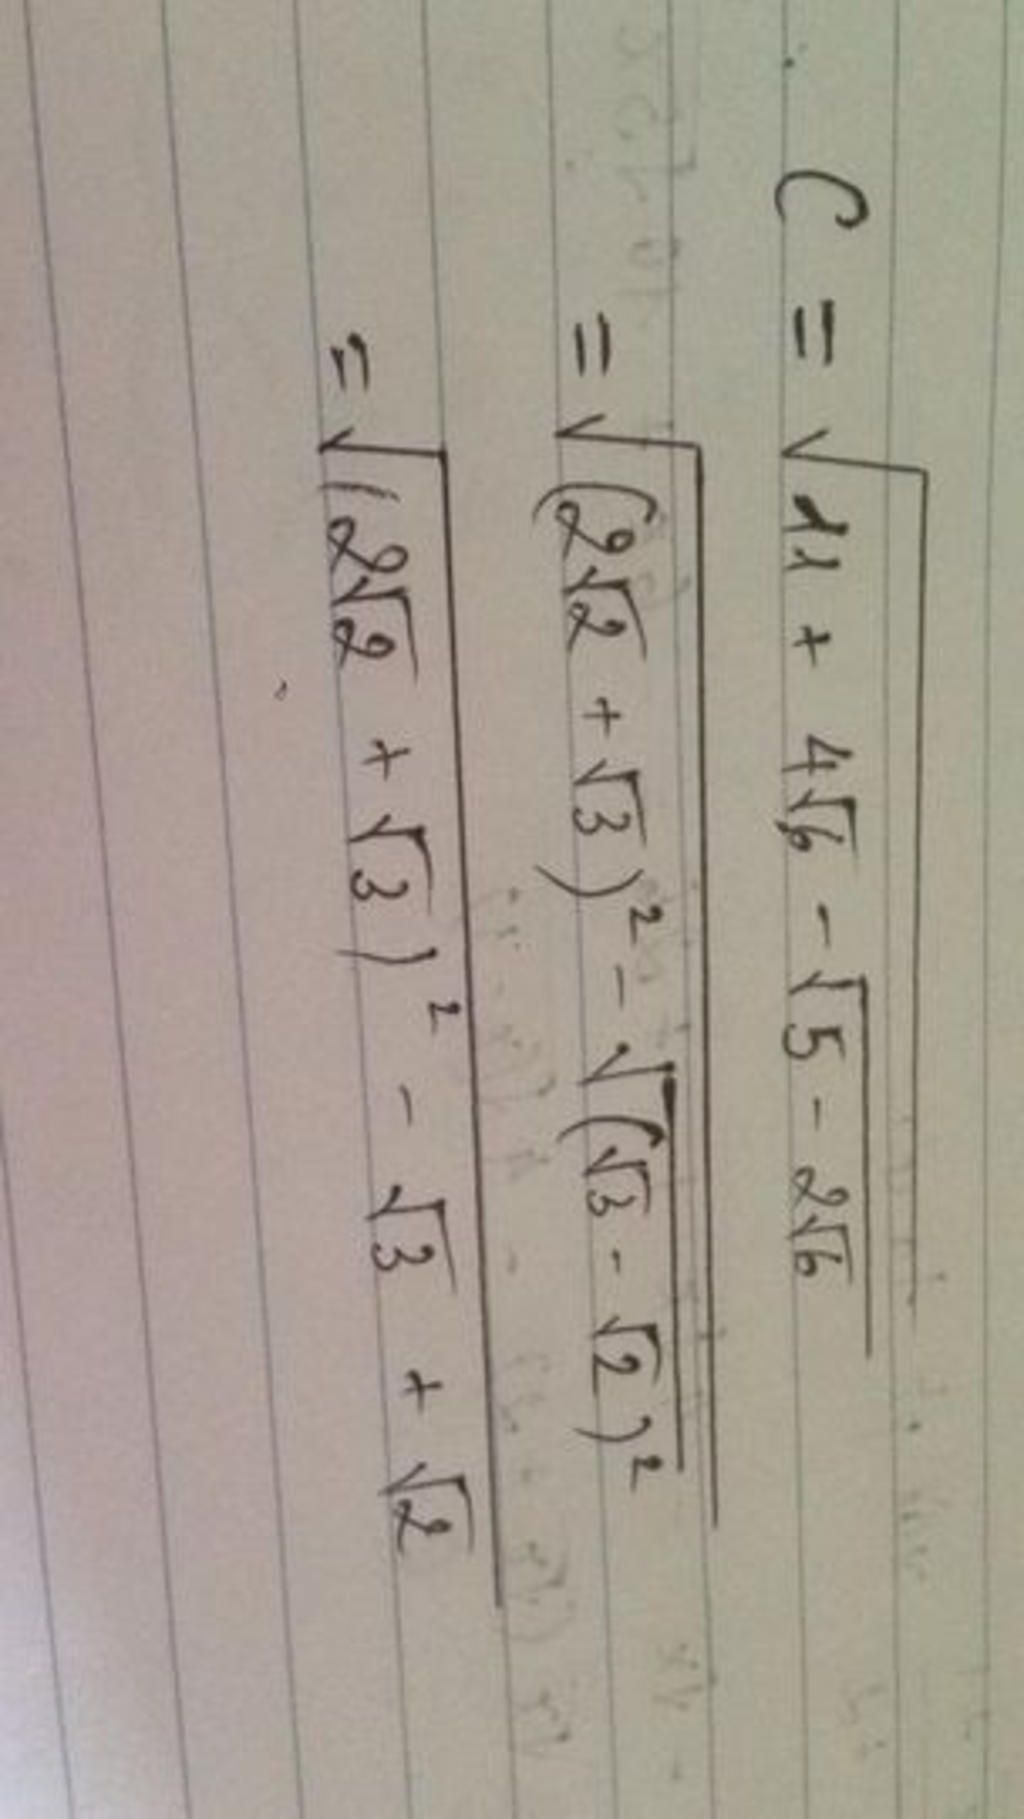 C = √(11 + 4√6 - √(5 - 2√6))
= √((2√2 + √3)² - √((√3 - √2)²))
= √((2√2 + √3)² - √3 + √2)